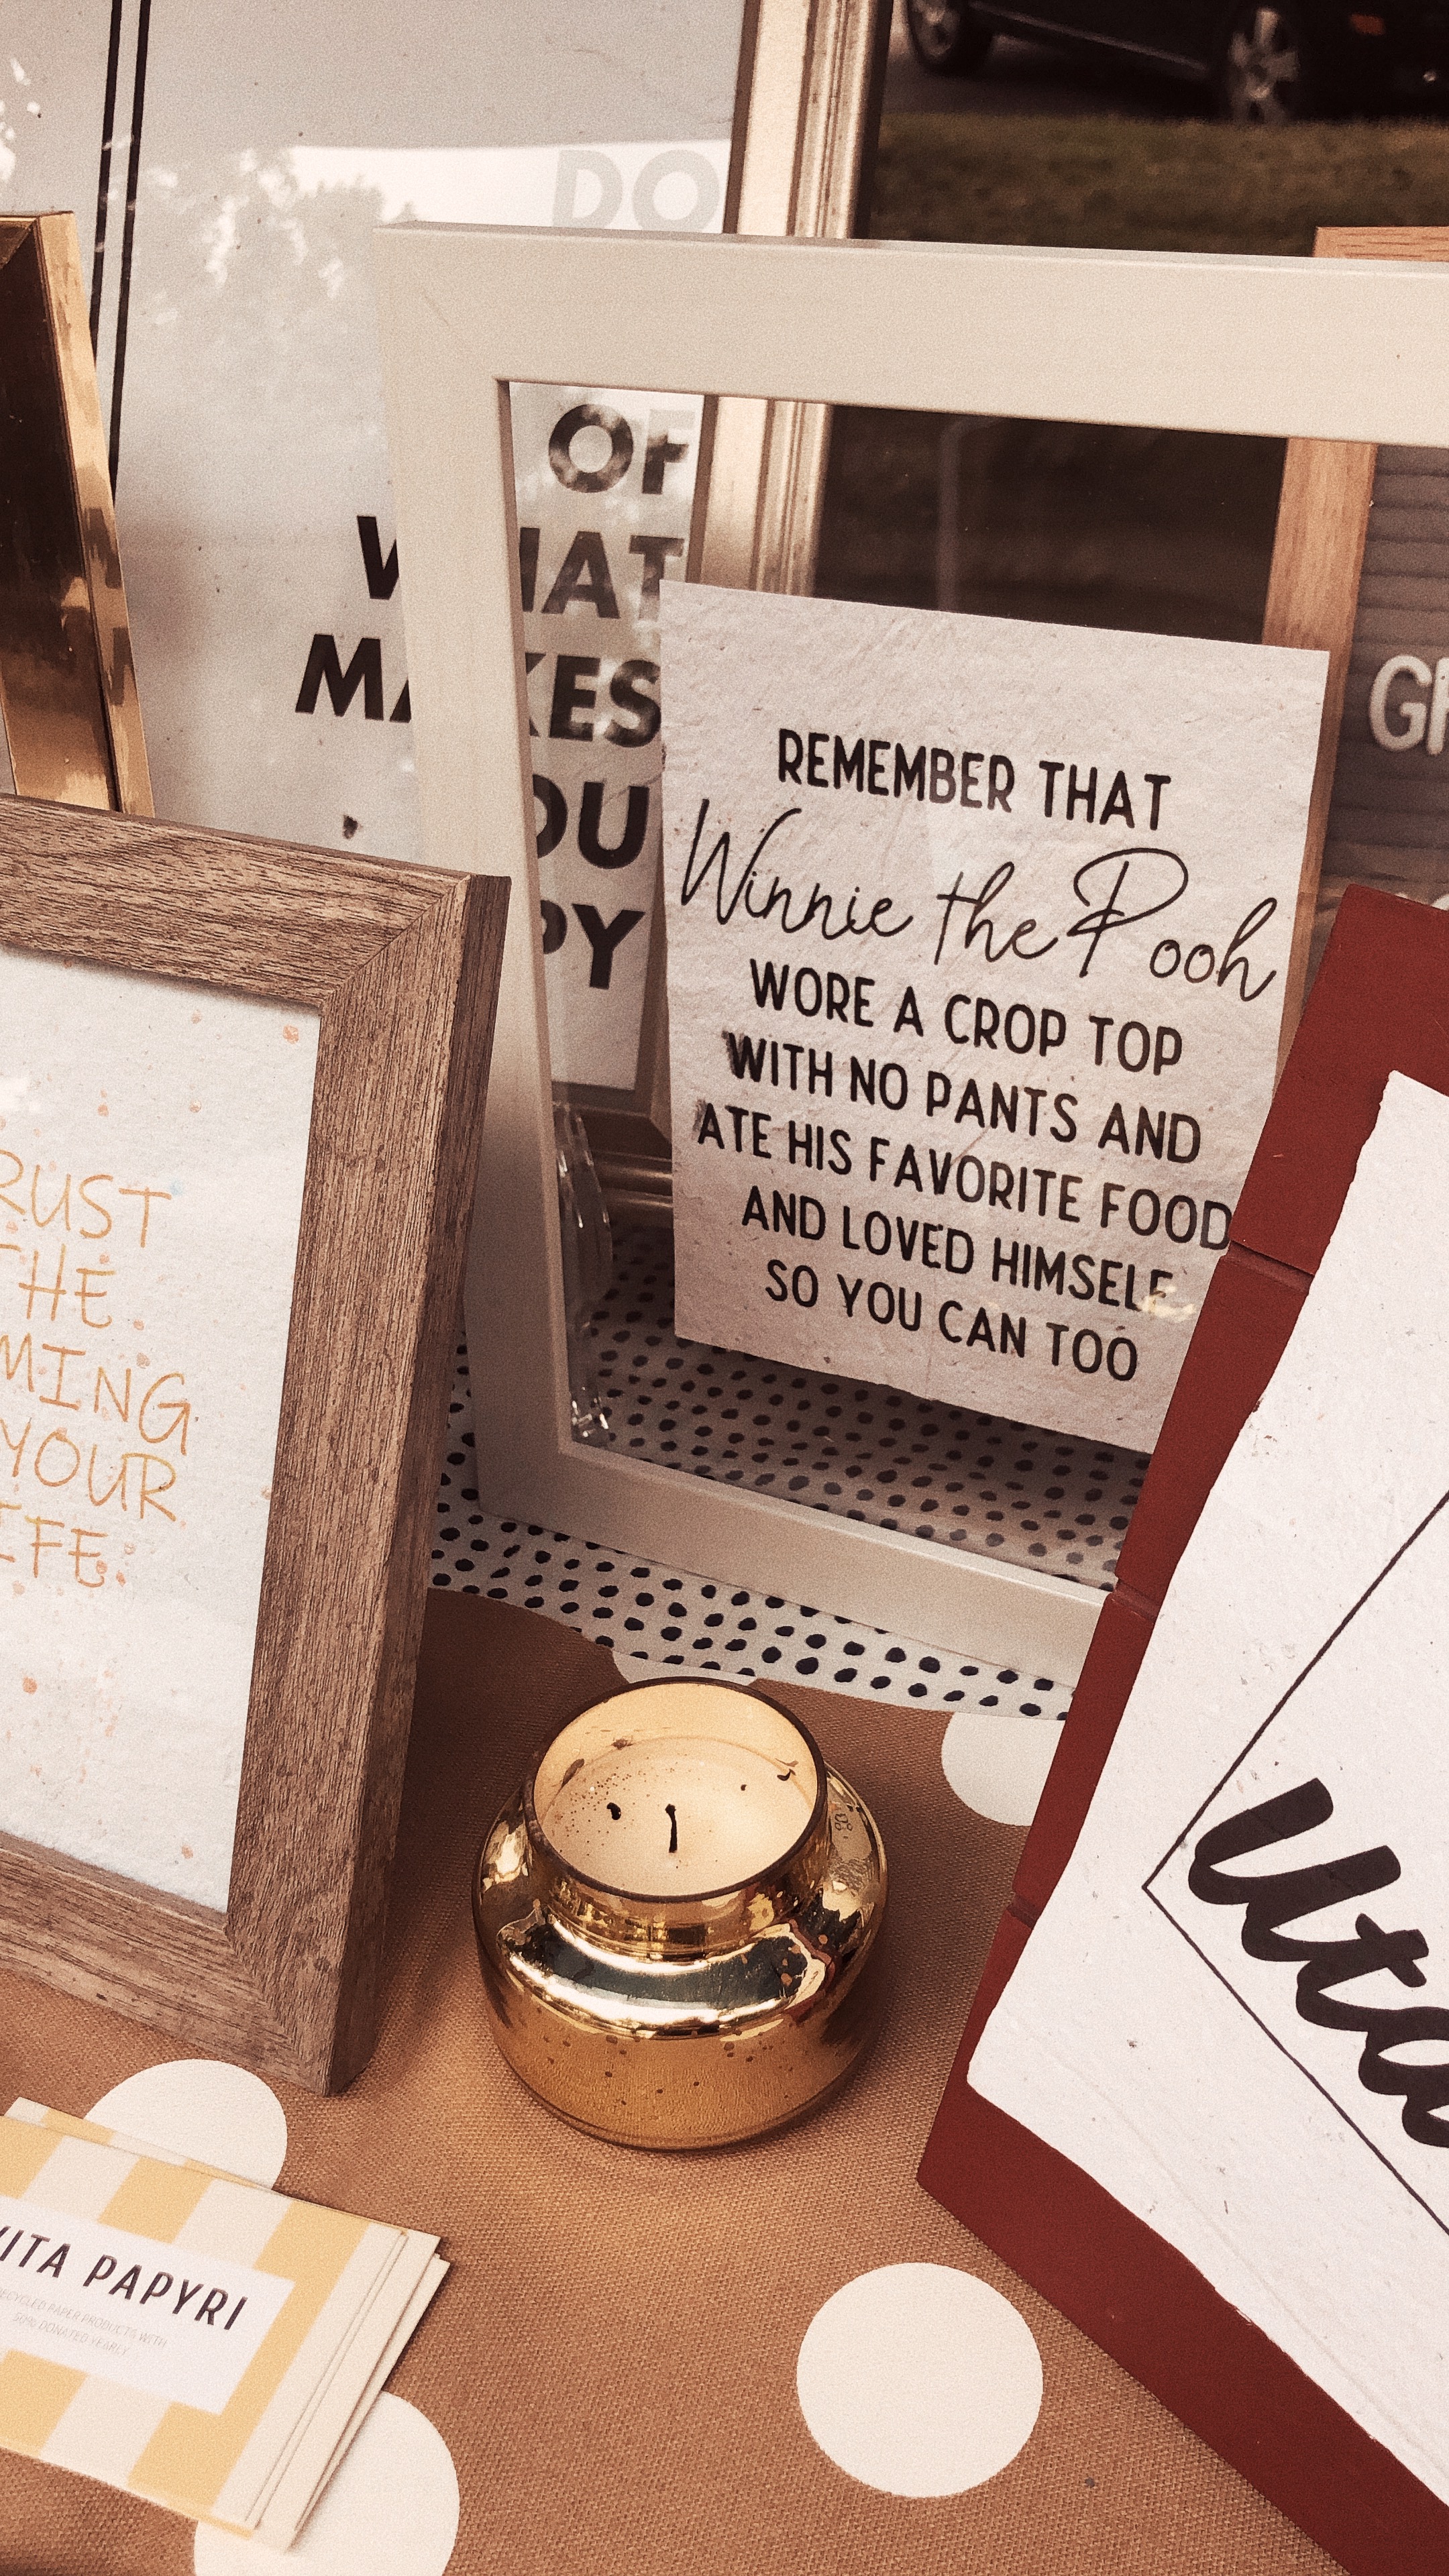 DO
OF
MAKES
REMEMBER THAT
Winnie the Pooh
WORE A CROP TOP
WITH NO PANTS AND
ATE HIS FAVORITE FOOD
AND LOVED HIMSELF
SO YOU CAN TOO
RUST
THE
MING
YOUR
IFE.
ITA PAPYRI
RECYCLED PAPER PRODUCTS WITH
50% DONATED YEARLY
Uta